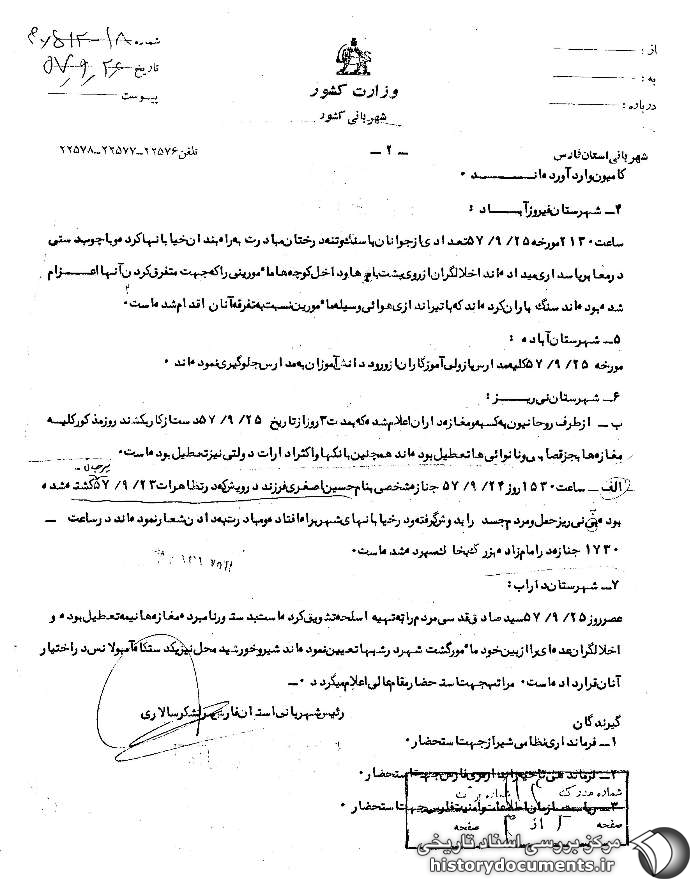 از :
به :
درباره :
وزارت کشور
شهربانی کشور
شماره
تاریخ ۵۷٫۹٫۲۶
پیوست
شهربانی استان فارس
ـ ۲ ـ
تلفن ۲۲۵۷۶ـ۲۲۵۷۷ـ۲۲۵۷۸
کامیون وارد آورده اند ۰
۴ـ شهرستان فیروزآباد :
ساعت ۲۱۳۰ مورخه ۵۷/۹/۲۵ تعدادی از جوانان با سنگ و تنه درختان مبادرت به راه بندان خیابانها کرده و با چوبدستی
در معابر پاسداری میداده اند اخلالگران از روی پشت بامها و داخل کوچه ها مامورینی را که جهت متفرق کردن آنها اعزام
شده بوده اند سنگ باران کرده اند که با تیراندازی هوائی وسیله مامورین نسبت به تفرقه آنان اقدام شده است ۰
۵ـ شهرستان آباده :
مورخه ۵۷/۹/۲۵ کلیه مدارس باز ولی آموزگاران از ورود دانش آموزان به مدارس جلوگیری نموده اند ۰
۶ـ شهرستان نی ریز :
ب ـ از طرف روحانیون به کسبه و مغازه داران اعلام شده که بمدت ۳ روز از تاریخ ۵۷/۹/۲۵ دست از کار بکشند روز مذکور کلیه
مغازه ها بجز قصابی و نانوائی ها تعطیل بوده اند همچنین بانکها و اکثر ادارات دولتی نیز تعطیل بوده است ۰
الف ـ ساعت ۱۵۳۰ روز ۵۷/۹/۲۴ جنازه شخصی بنام حسین اصغری فرزند درویش که در تظاهرات ۵۷/۹/۲۳ کشته شده
بوده به نی ریز حمل و مردم جسد را بدوش گرفته و در خیابانهای شهر براه افتاده و مبادرت به دادن شعار نموده اند در ساعت ـ
۱۷۳۰ جنازه در امام زاده بزرگ بخاک سپرده شده است ۰
۷ـ شهرستان داراب :
عصر روز ۵۷/۹/۲۵ سید صادق قدسی مردم را به تهیه اسلحه تشویق کرده است بدستور نامبرده مغازه ها نیمه تعطیل بوده و
اخلالگران عده ای را از بین خود مامور گشت شهر در شبها تعیین نموده اند شیر و خورشید محل نیز یکدستگاه آمبولانس در اختیار
آنان قرار داده است ۰ مراتب جهت استحضار مقام عالی اعلام میگردد ۰ـ
رئیس شهربانی استان فارس سرلشکر سالاری
گیرندگان
۱ـ فرمانداری نظامی شیراز جهت استحضار ۰
۲ـ فرماندهی ناحیه ژاندارمری فارس جهت استحضار ۰
۳ـ ریاست سازمان اطلاعات و امنیت فارس جهت استحضار ۰
شماره مدرک
صفحه ۲ از ۳ صفحه
مرکز بررسی اسناد تاریخی
historydocuments.ir